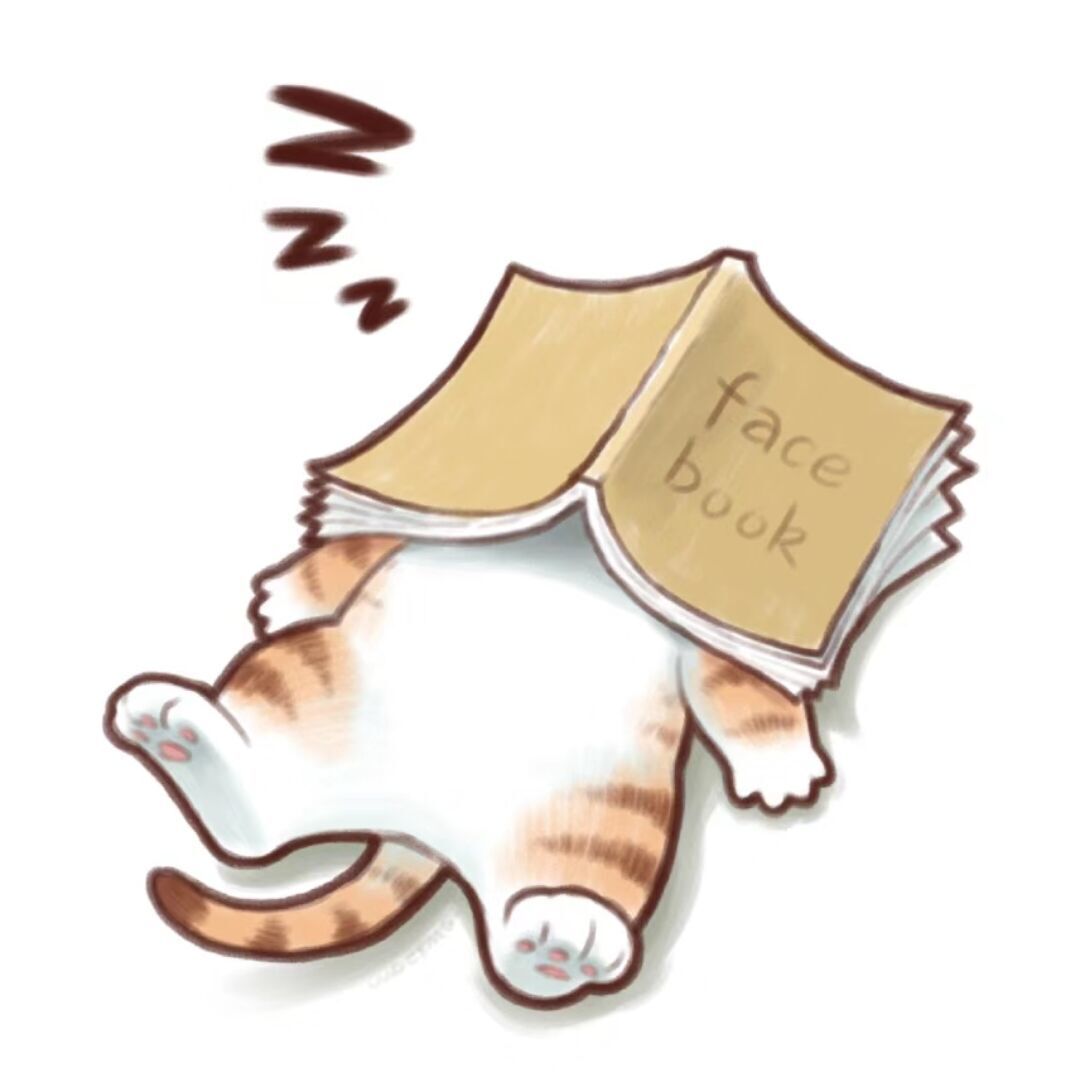 z
z
z
face
book